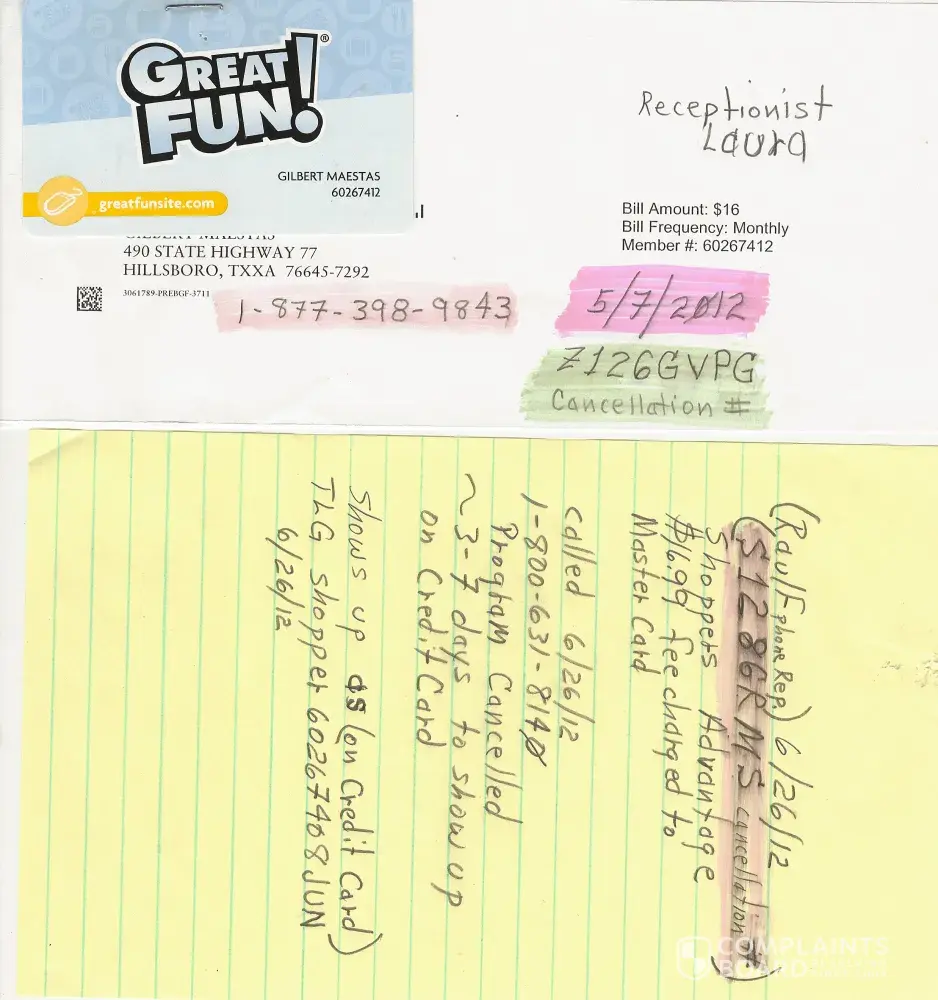 GREAT
FUN!®
GILBERT MAESTAS
60267412
greatfunsite.com
Receptionist
Laura
Bill Amount: $16
Bill Frequency: Monthly
Member #: 60267412
GILBERT MAESTAS
490 STATE HIGHWAY 77
HILLSBORO, TXXA 76645-7292
3061789-PREBGF-3711
1-877-398-9843
5/7/2012
Z126GVPG
Cancellation #
(Raul F phone Rep.) 6/26/12
(S1286RMS cancellation #)
Shoppers Advantage
$16.99 fee charged to
Master Card
called 6/26/12
1-800-631-8140
Program Cancelled
~3-7 days to show up
on Credit Card
Shows up as (on Credit Card)
TLG shopper 60267408JUN
6/26/12
COMPLAINTS
BOARD